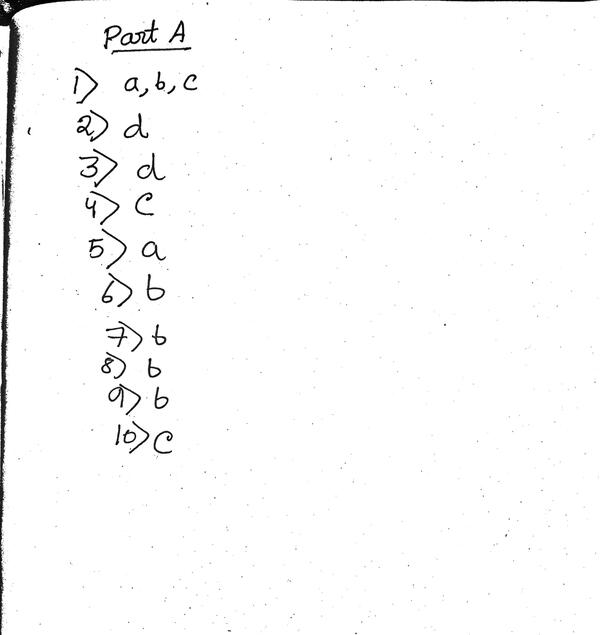 Part A
1) a, b, c
2) d
3) d
4) c
5) a
6) b
7) b
8) b
9) b
10) c